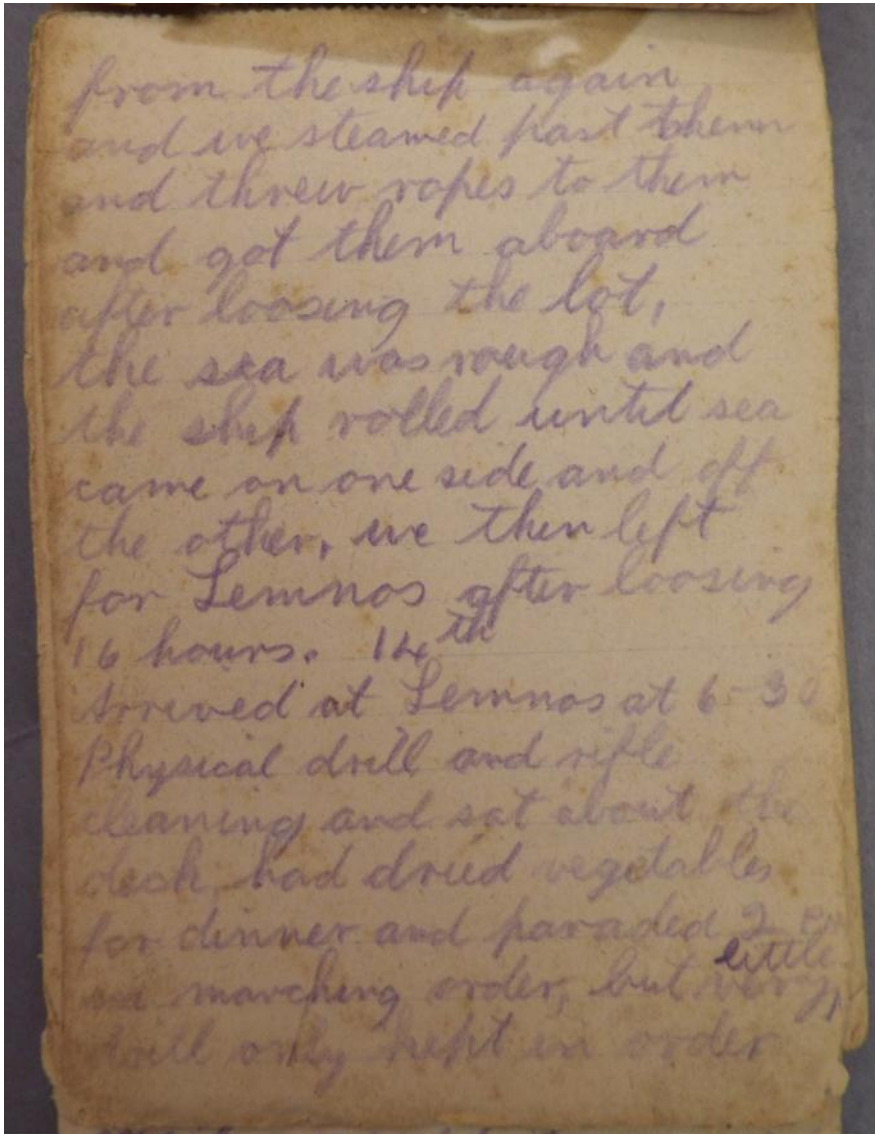 from the ship again
and we steamed past them
and threw ropes to them
and got them aboard
after loosing the lot,
the sea was rough and
the ship rolled until sea
came on one side and off
the other, we then left
for Lemnos after loosing
16 hours. 14th
Arrived at Lemnos at 6-30
Physical drill and rifle
cleaning and sat about the
deck, had dried vegetables
for dinner and paraded 2 PM
in marching order, but very little
drill only kept in order